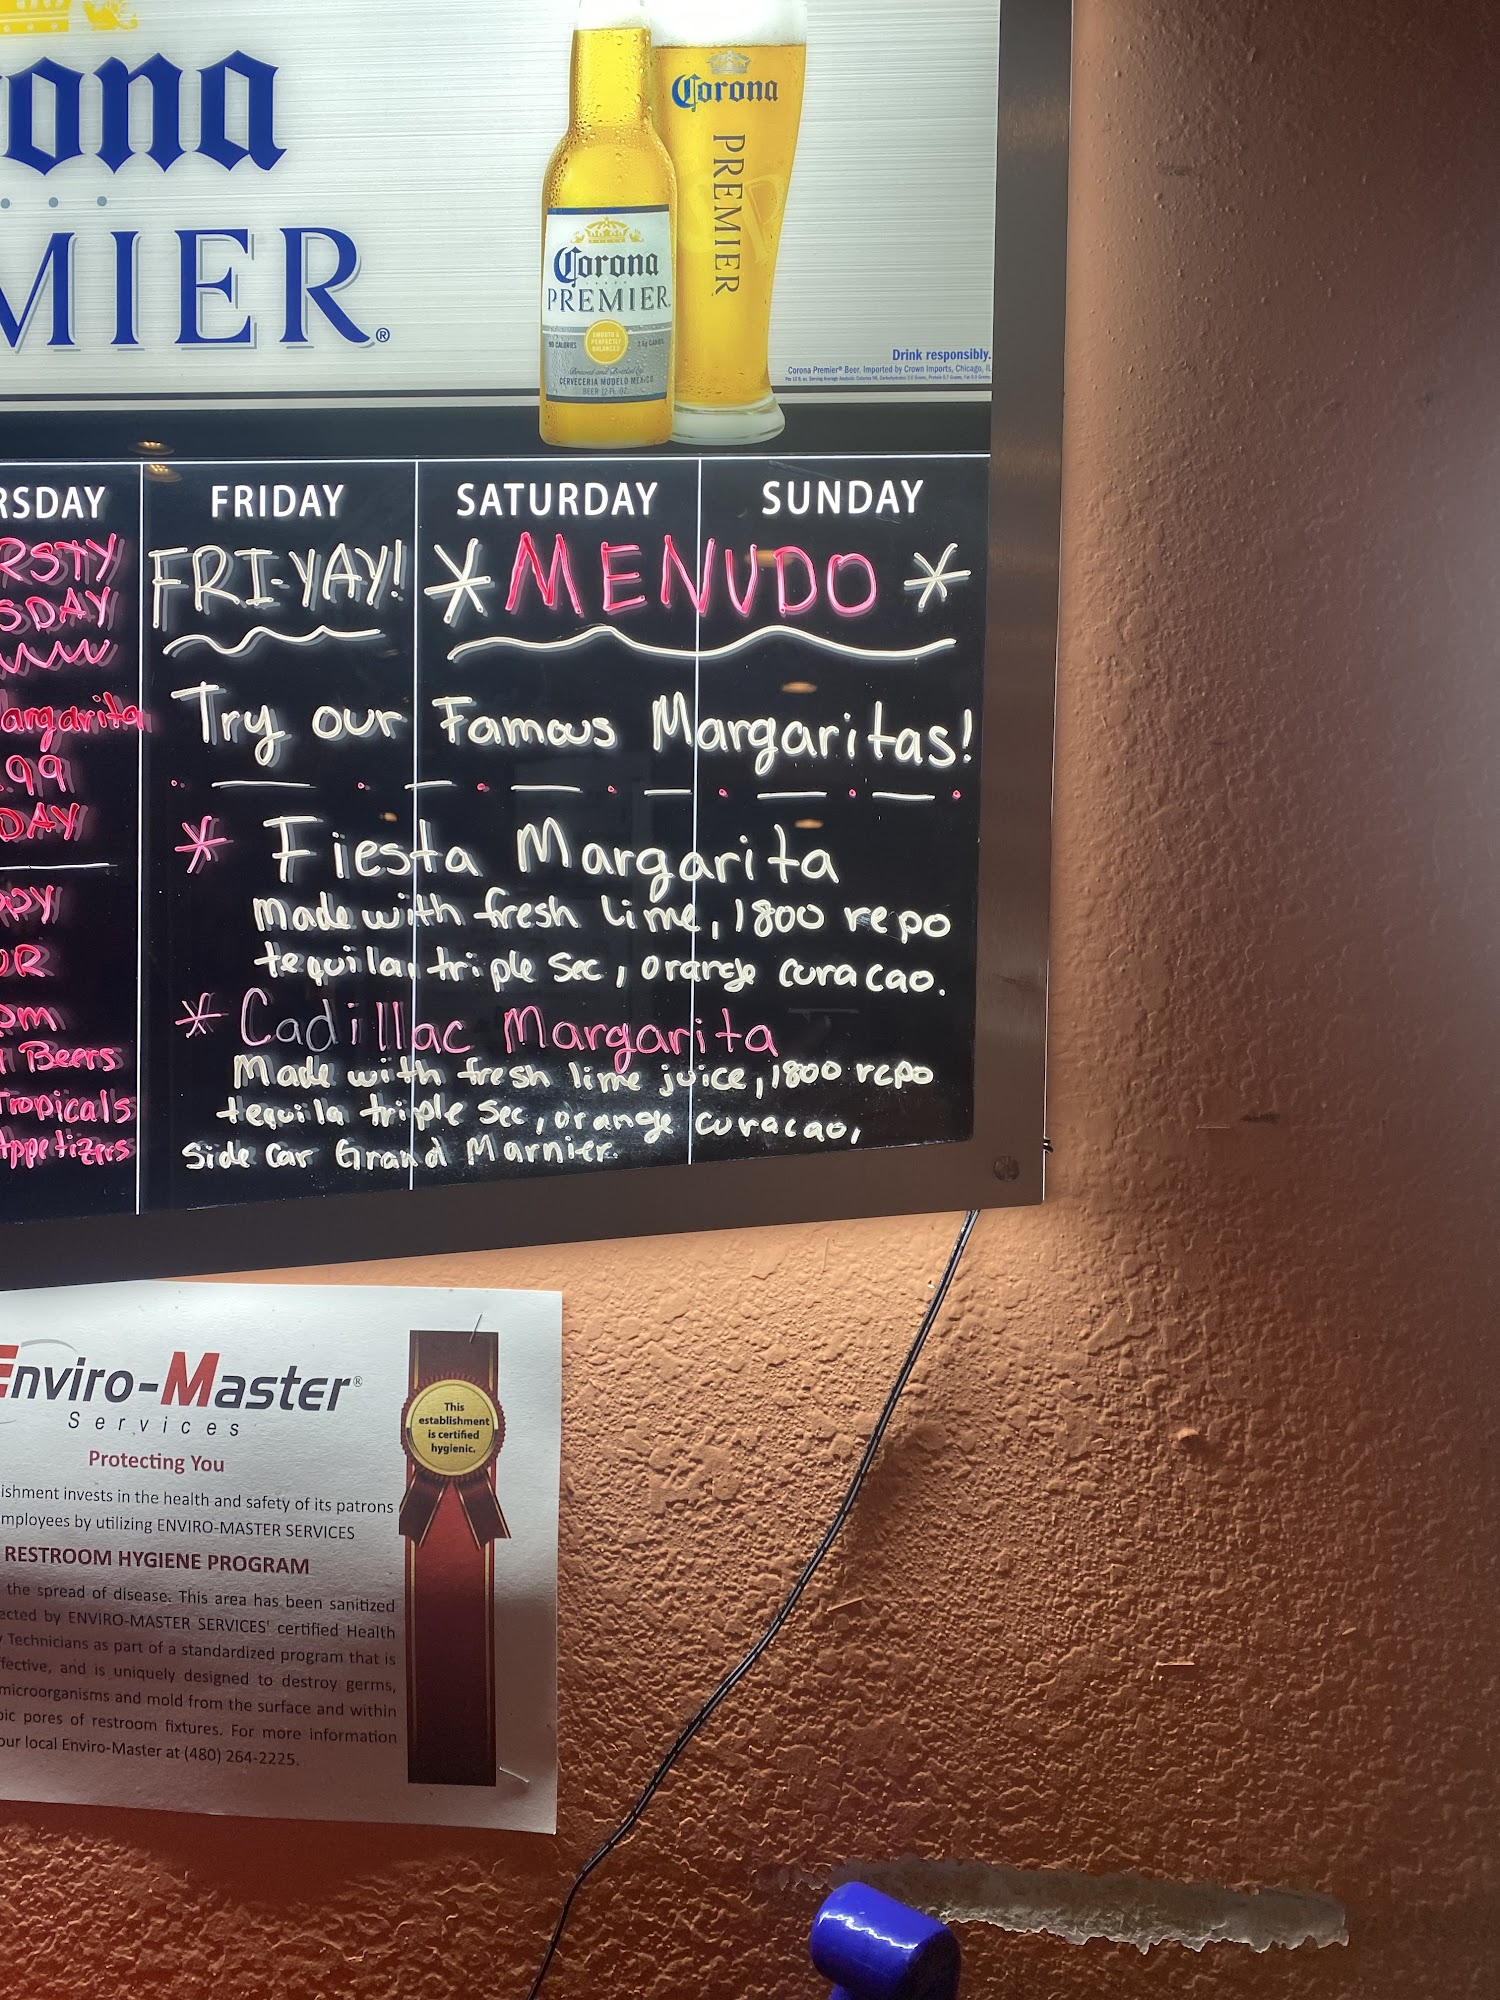 Corona
PREMIER
orona
MIER®
Corona
PREMIER
90 CALORIES
SMOOTH &
PERFECTLY
BALANCED
2.6g CARBS
Brewed and Bottled by
CERVECERIA MODELO MEXICO
BEER 12 FL. OZ.
Drink responsibly.
Corona Premier® Beer. Imported by Crown Imports, Chicago, IL
RSDAY
RSTY
SDAY
argarita
.99
DAY
PPY
UR
pm
Beers
Tropicals
Appetizers
FRIDAY
SATURDAY
SUNDAY
FRI-YAY!
* MENUDO *
Try our Famous Margaritas!
* Fiesta Margarita
Made with fresh lime, 1800 repo
tequila, triple sec, orange curacao.
* Cadillac Margarita
Made with fresh lime juice, 1800 repo
tequila triple sec, orange curacao,
Side Car Grand Marnier.
Enviro-Master®
Services
Protecting You
ishment invests in the health and safety of its patrons
mployees by utilizing ENVIRO-MASTER SERVICES
RESTROOM HYGIENE PROGRAM
the spread of disease. This area has been sanitized
ected by ENVIRO-MASTER SERVICES' certified Health
y Technicians as part of a standardized program that is
ffective, and is uniquely designed to destroy germs,
microorganisms and mold from the surface and within
pic pores of restroom fixtures. For more information
our local Enviro-Master at (480) 264-2225.
This
establishment
is certified
hygienic.